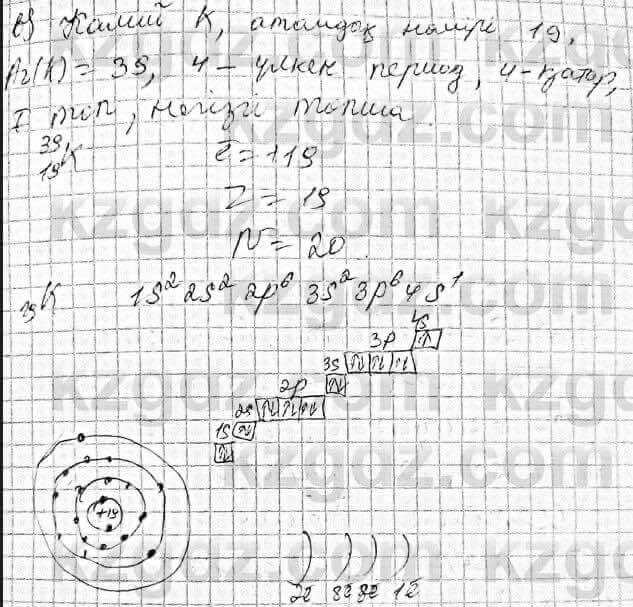 в) Калий К, атомдық нөмірі 19,
Ar(K) = 39, 4 – үлкен период, 4-қатар,
I топ, негізгі топша.
39
19 K
ē = +19
Z = 19
N = 20.
19K 1s² 2s² 2p⁶ 3s² 3p⁶ 4s¹
4s
3p
3s
2p
2s
1s
+19
2ē 8ē 8ē 1ē
kzgdz.com